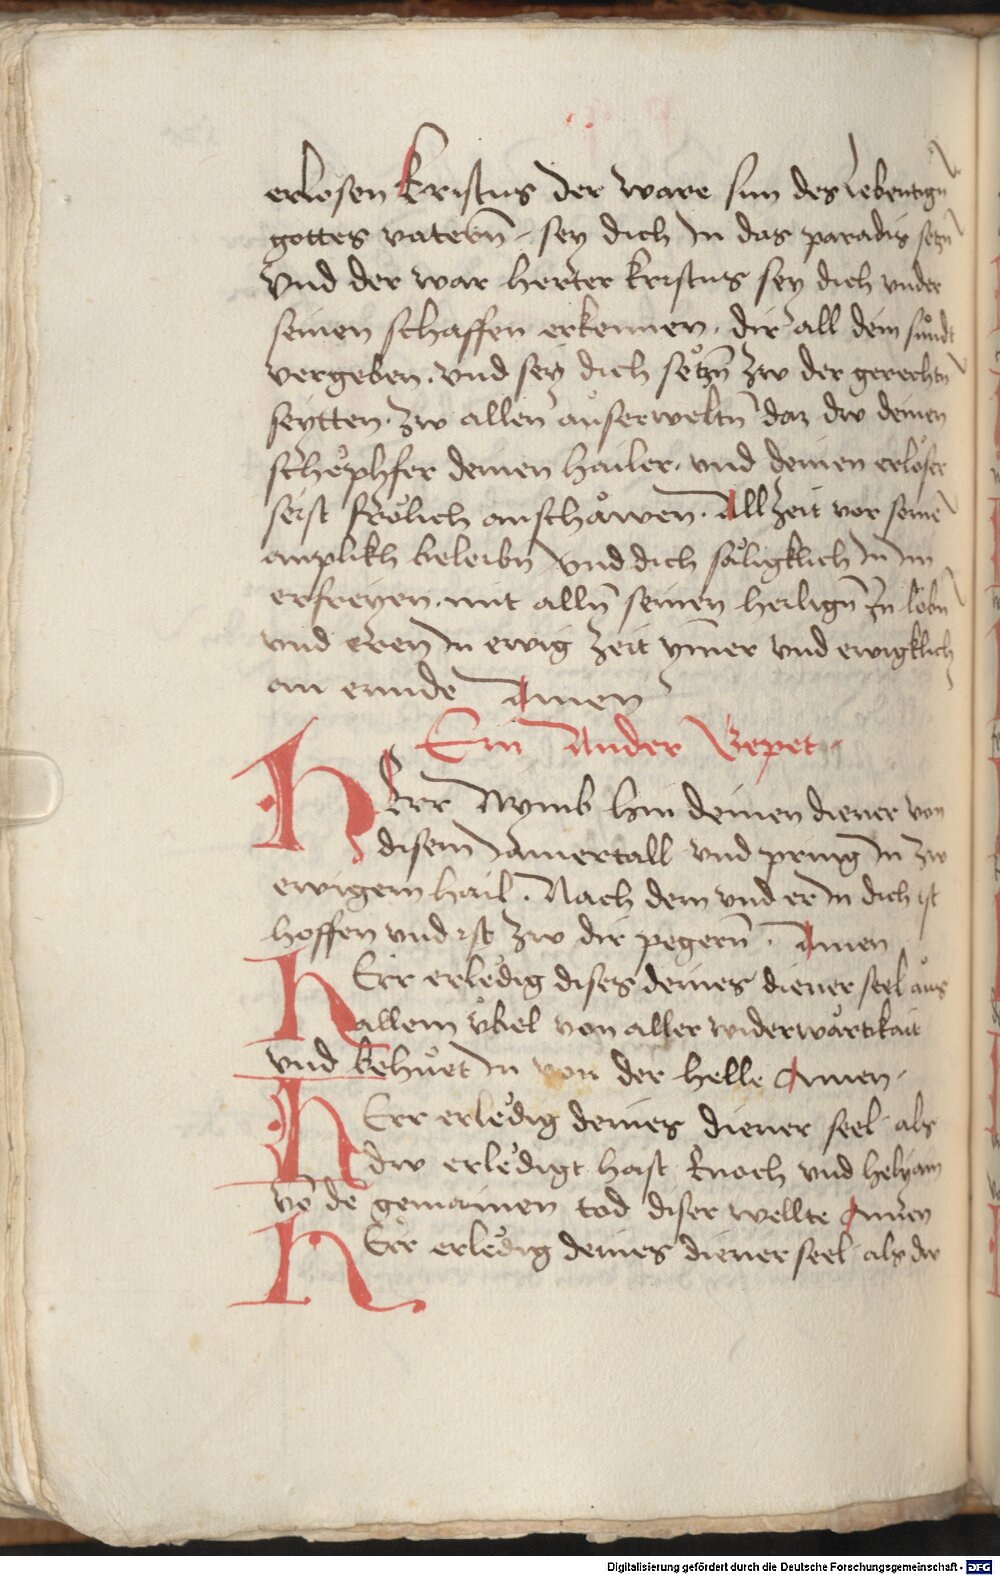 erlosen Kristus der ware sun des lebentign
gottes vatern̄ · sey dich in das paradis seczn̄
Vnd der war herter kristus sey dich vnder
seinen schaffen erkennen · dir all dein sůndt
vergeben · vnd sey dich seczn̄ zw der gerechtn
seytten · zw allen außerweltn̄ daz dw deinen
schephfer deinen hailer · vnd deinen erloser
seist frölich anschåwen · Allzeit vor seinē
anplikh beleibn vnd dich såligklich in im
erfreyen · mit alln̄ seinen heilign̄ zu lobn
vnd eren in ewig zeit ym̄er vnd ewigklich
an ennde Amen
Ein Ander Gepet
HErr Nymb hin deinen diener von
disem iamertall vnd pring in zw
ewigem hail · Nach dem vnd er in dich ist
hoffen vnd ist zw dir pegern̄ · Amen
HErr erledig dises deines diener seel aůs
allem ůbel von aller widerwårtikait
vnd behůet in von der helle Amen ·
HErr erledig deines diener seel als
dw erledigt hast Enoch vnd helyam
vō de gemainen tod diser wellte Amen
HErr erledig deines diener seel als dw
Digitalisierung gefördert durch die Deutsche Forschungsgemeinschaft - DFG